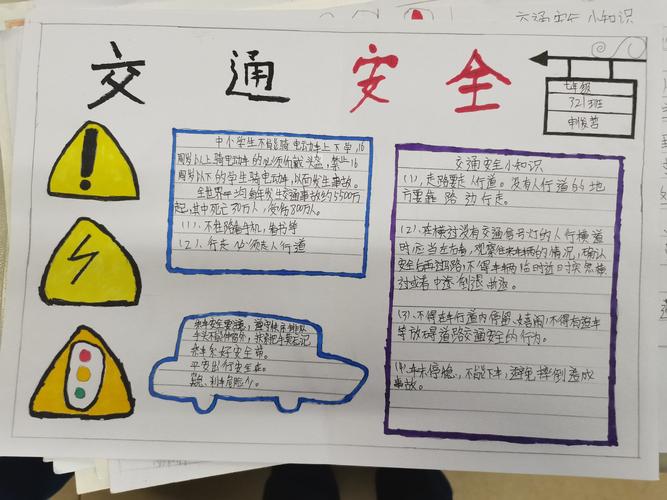 交通安全小知识
交通安全
七年级
321班
申俊苔
中小学生不能骑电动车上下学,16
周岁以上骑电动车的必须佩戴头盔,禁止16
周岁以下的学生骑电动车,以防发生事故。
全世界平均每年发生交通事故约5500万
起,其中死亡30万人,受伤800万人。
(1)、不在路看手机,看书等
(2)、行走必须走人行道
乘车安全要注意,遵守秩序要排队
手头不能伸窗外,扶紧把手莫忘记
乘车系好安全带。
平安出行安全在。
交通安全小知识
(1),走路要走人行道。没有人行道的地
方要靠路边行走。
(2),在横过没有交通信号灯的人行横道
时,应当左右看,观察往来车辆的情况,确认
安全后再过马路;不得车辆临近时突然横
过或者中途倒退、折返。
(3)、不得在车行道内停留、嬉闹;不得有追车
等妨碍道路交通安全的行为。
(4)、车未停稳,不能下车,避免摔倒造成
事故。